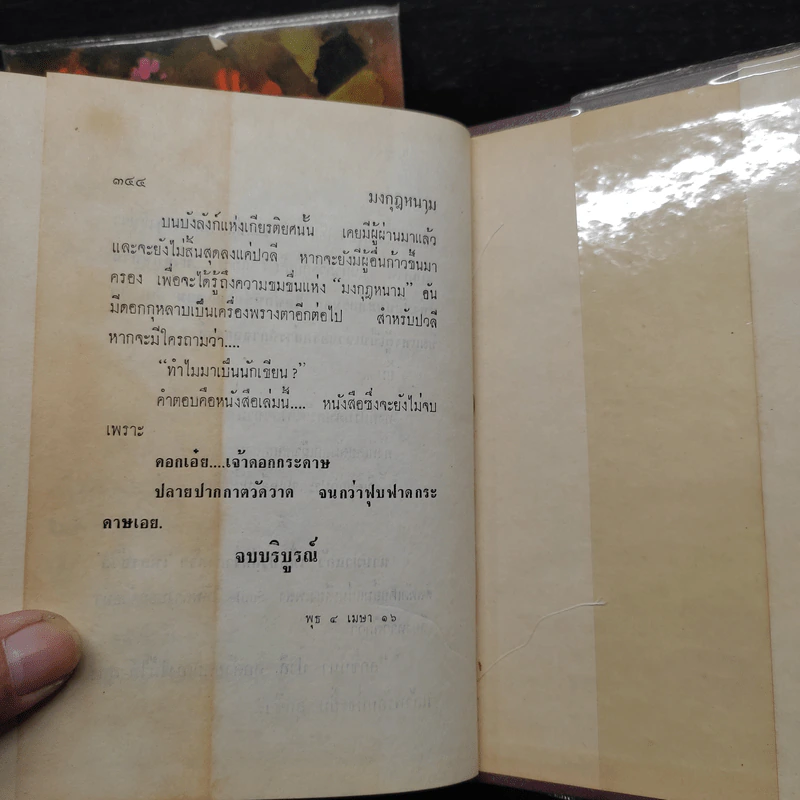 ๓๔๔
มงกุฎหนาม
บนบังลังก์แห่งเกียรติยศนั้น เคยมีผู้ผ่านมาแล้ว
และจะยังไม่สิ้นสุดลงแค่ปวลี หากจะยังมีผู้อื่นก้าวขึ้นมา
ครอง เพื่อจะได้รู้ถึงความขมขื่นแห่ง “มงกุฎหนาม” อัน
มีดอกกุหลาบเป็นเครื่องพรางตาอีกต่อไป สำหรับปวลี
หากจะมีใครถามว่า....
“ทำไมมาเป็นนักเขียน ?”
คำตอบคือหนังสือเล่มนี้.... หนังสือซึ่งจะยังไม่จบ
เพราะ
ดอกเอ๋ย....เจ้าดอกกระดาษ
ปลายปากกาตวัดวาด จนกว่าฟุบฟาดกระ
ดาษเอย.
จบบริบูรณ์
พุธ ๔ เมษา ๑๖